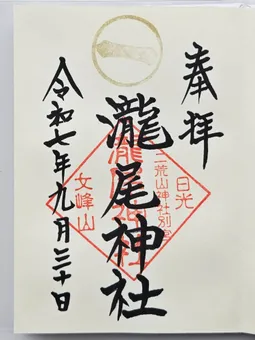 奉拝
日光
二荒山神社別宮
瀧尾神社
瀧尾神社
女峰山
令和七年九月三十日